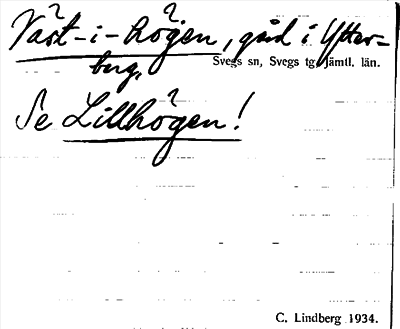 Väst-i-högen, gård i Ytter-
berg,
Svegs sn, Svegs tg, Jämtl. län.
Se Lillhögen!
C. Lindberg 1934.